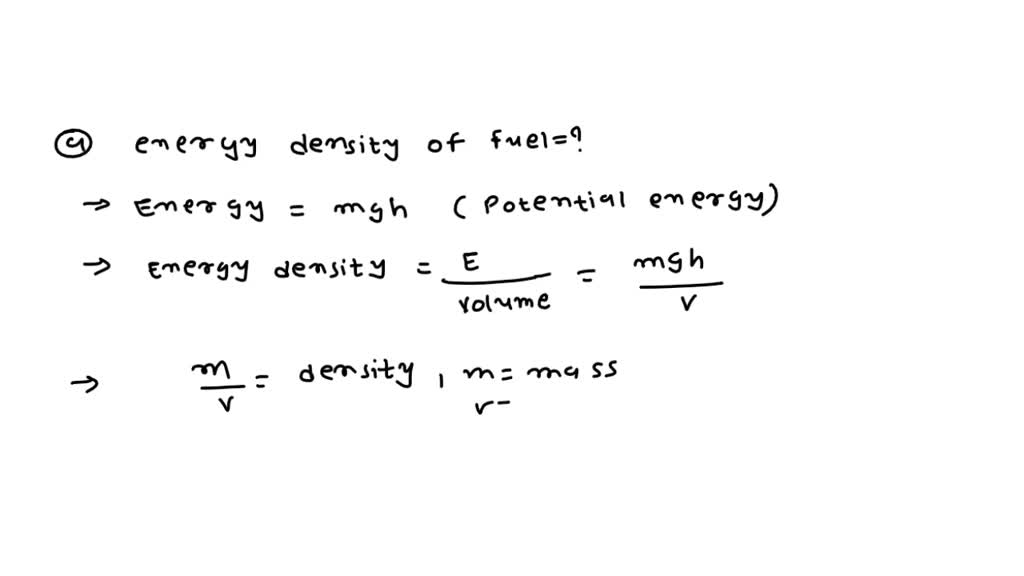 (a) energy density of fuel=?
→ Energy = mgh (Potential energy)
→ Energy density = E / volume = mgh / v
→ m / v = density, m = mass
v =